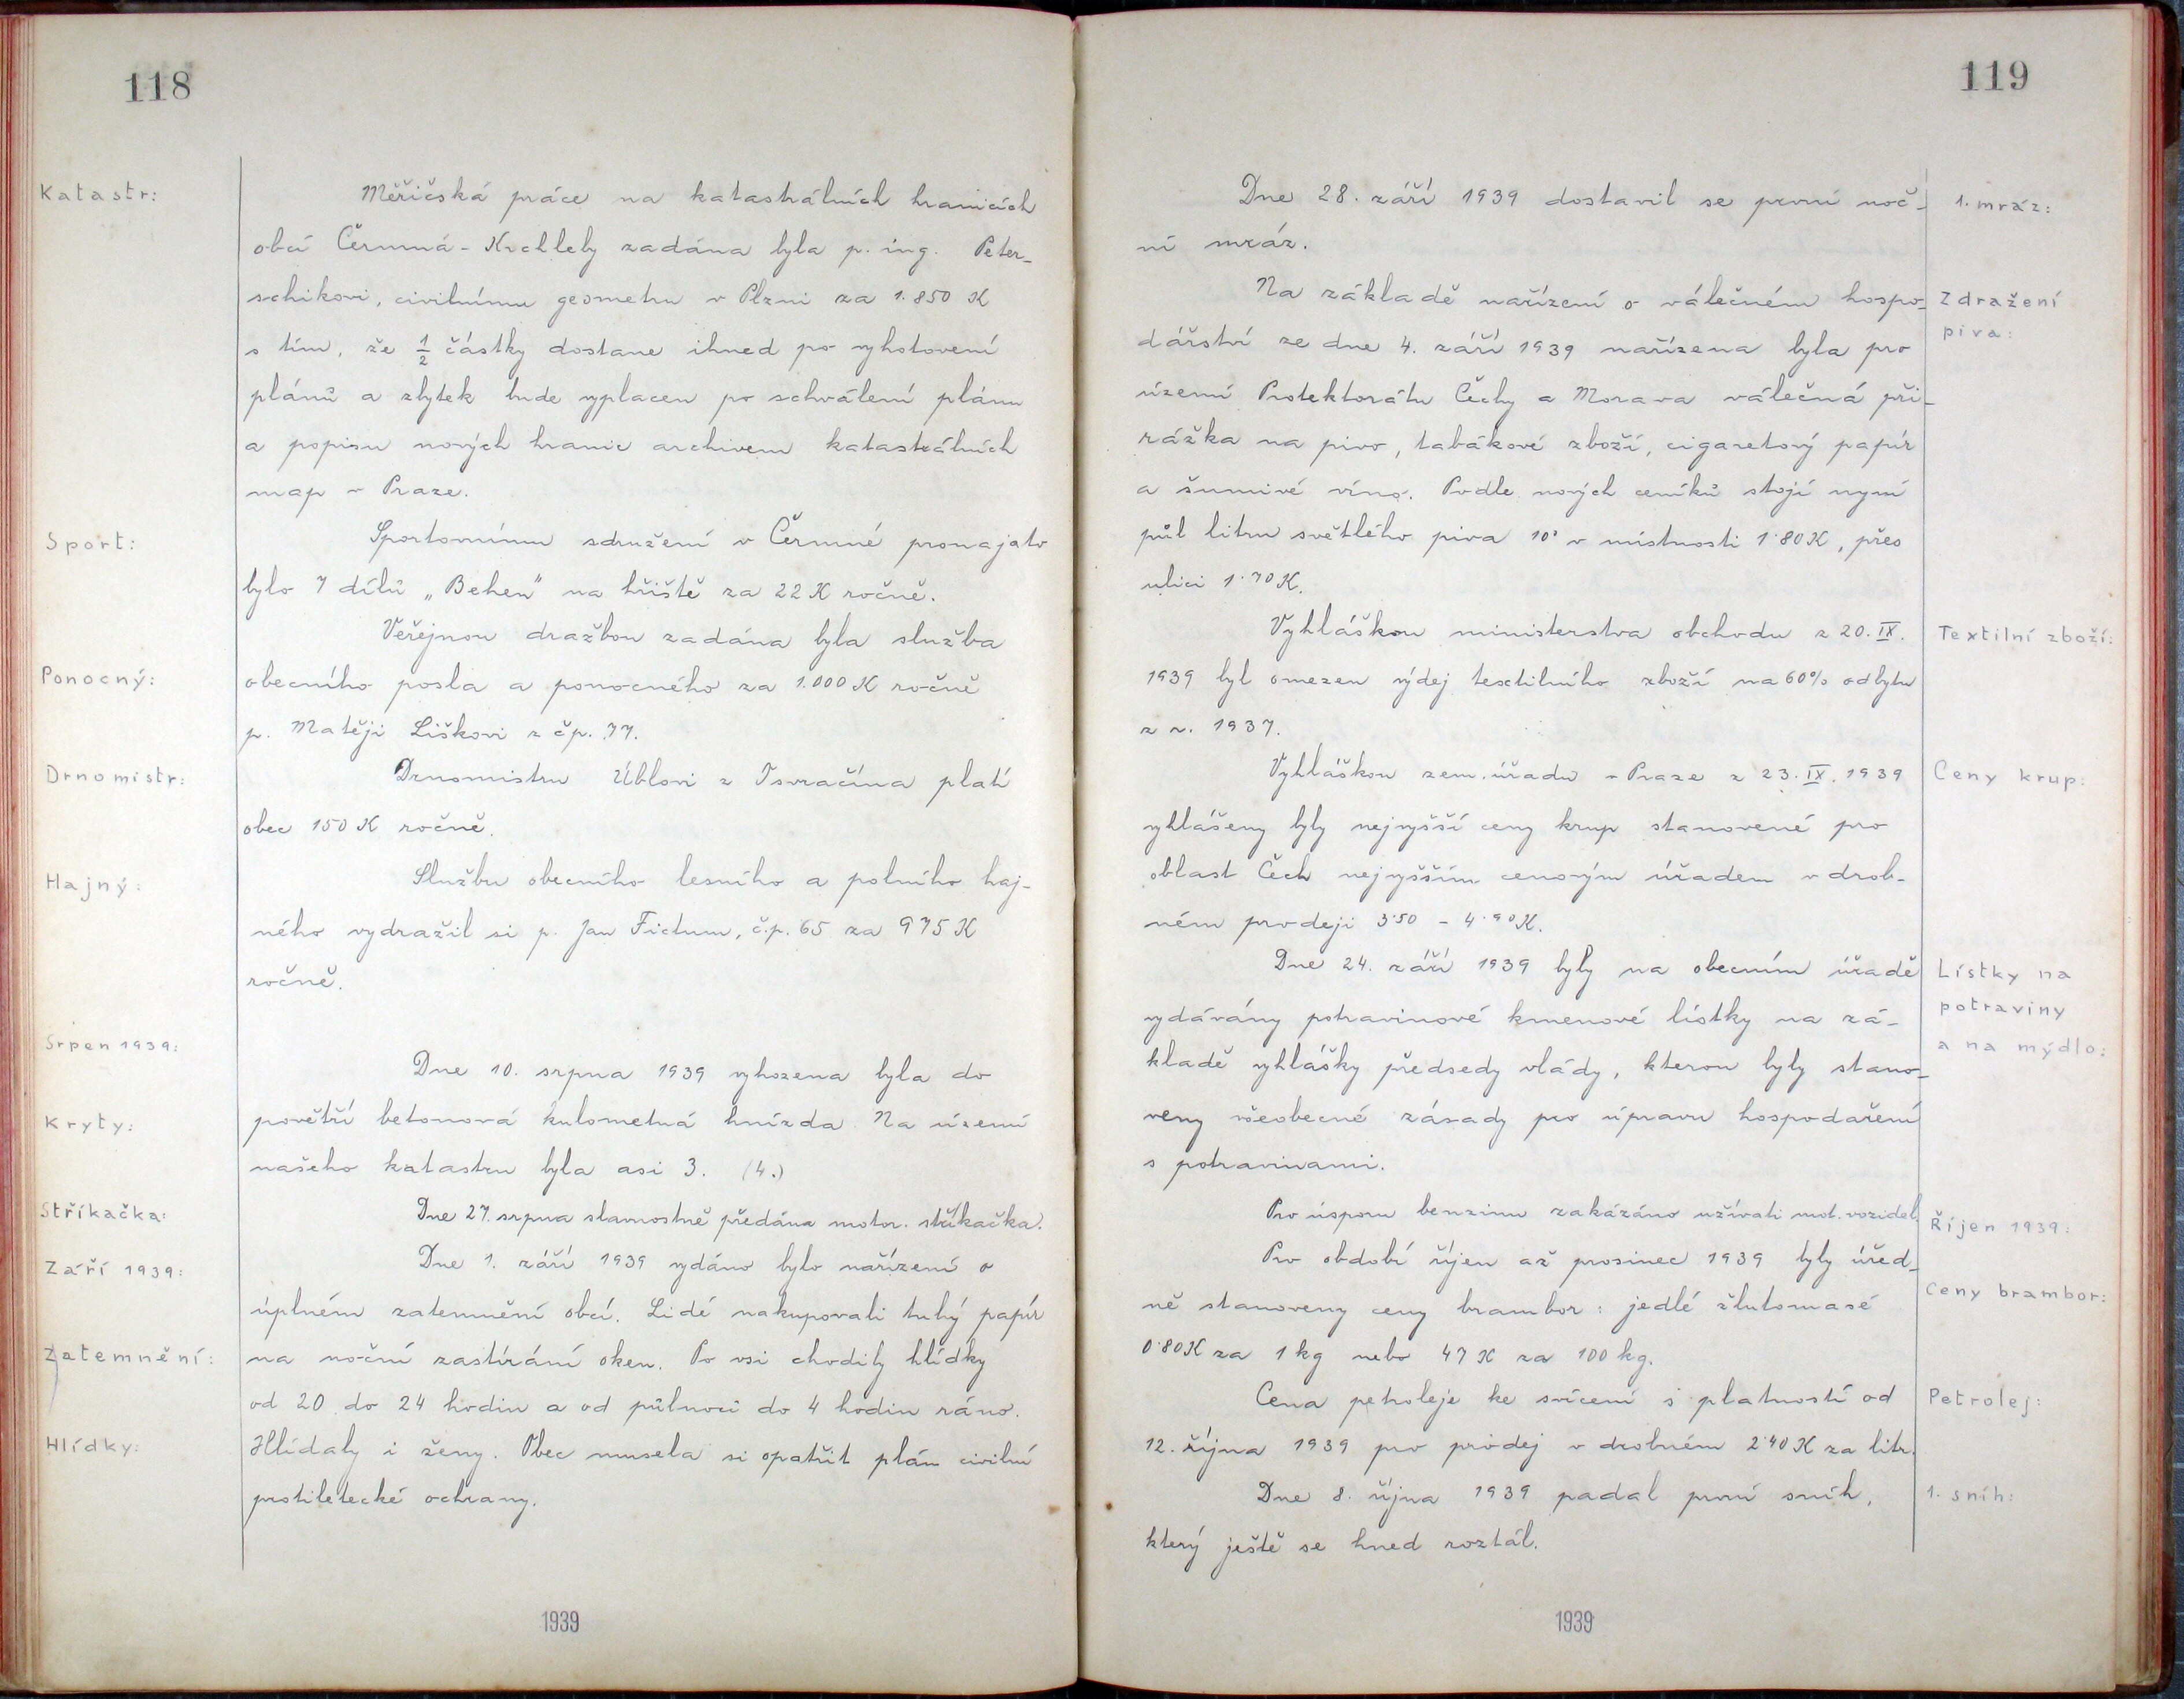 118
Katastr:
Měřičská práce na katastrálních hranicích
obcí Čermná - Krchleby zadána byla p. ing. Peter-
schikovi, civilnímu geometru v Plzni za 1.850 K
s tím, že 1/2 částky dostane ihned po vyhotovení
plánů a zbytek bude vyplacen po schválení plánu
a popisu nových hranic archivem katastrálních
map v Praze.
Sport:
Sportovnímu sdružení v Čermné pronajato
bylo 7 dílů „Behen" na hřiště za 22 K ročně.
Veřejnou dražbou zadána byla služba
Ponocný:
obecního posla a ponocného za 1.000 K ročně
p. Matěji Liškovi z čp. 77.
Drnomistr:
Drnomistru Úblovi z Osvračína platí
obec 150 K ročně.
Hajný:
Službu obecního lesního a polního haj-
ného vydražil si p. Jan Fictum, č.p. 65 za 975 K
ročně.
Srpen 1939:
Dne 10. srpna 1939 vyhozena byla do
Kryty:
povětří betonová kulometná hnízda. Na území
našeho katastru byla asi 3. (4.)
Stříkačka:
Dne 27. srpna slavnostně předána motor. stříkačka.
Září 1939:
Dne 1. září 1939 vydáno bylo nařízení o
úplném zatemnění obcí. Lidé nakupovali tuhý papír
Zatemnění:
na noční zastírání oken. Po vsi chodily hlídky
od 20 do 24 hodin a od půlnoci do 4 hodin ráno.
Hlídky:
Hlídaly i ženy. Obec musela si opatřit plán civilní
protiletecké ochrany.
1939
119
Dne 28. září 1939 dostavil se první noč-
1. mráz:
ní mráz.
Na základě nařízení o válečném hospo-
Zdražení
piva:
dářství ze dne 4. září 1939 nařízena byla pro
území Protektorátu Čechy a Morava válečná při-
rážka na pivo, tabákové zboží, cigaretový papír
a šumivé víno. Podle nových ceníků stojí nyní
půl litru světlého piva 10° v místnosti 1·80 K, přes
ulici 1·70 K.
Vyhláškou ministerstva obchodu z 20. IX.
Textilní zboží:
1939 byl omezen výdej textilního zboží na 60% odbytu
z r. 1937.
Vyhláškou zem. úřadu v Praze z 23. IX. 1939
Ceny krup:
vyhlášeny byly nejvyšší ceny krup stanovené pro
oblast Čech nejvyšším cenovým úřadem v drob-
ném prodeji 3·50 - 4·90 K.
Dne 24. září 1939 byly na obecním úřadě
Lístky na
potraviny
a na mýdlo:
vydávány potravinové kmenové lístky na zá-
kladě vyhlášky předsedy vlády, kterou byly stano-
veny všeobecné zásady pro úpravu hospodaření
s potravinami.
Pro úsporu benzinu zakázáno užívati mot. vozidel.
Říjen 1939:
Pro období říjen až prosinec 1939 byly úřed-
Ceny brambor:
ně stanoveny ceny brambor: jedlé žlutomasé
0·80 K za 1 kg nebo 47 K za 100 kg.
Cena petroleje ke svícení s platností od
Petrolej:
12. října 1939 pro prodej v drobném 2·40 K za litr.
Dne 8. října 1939 padal první sníh,
1. sníh:
který ještě se hned roztál.
1939